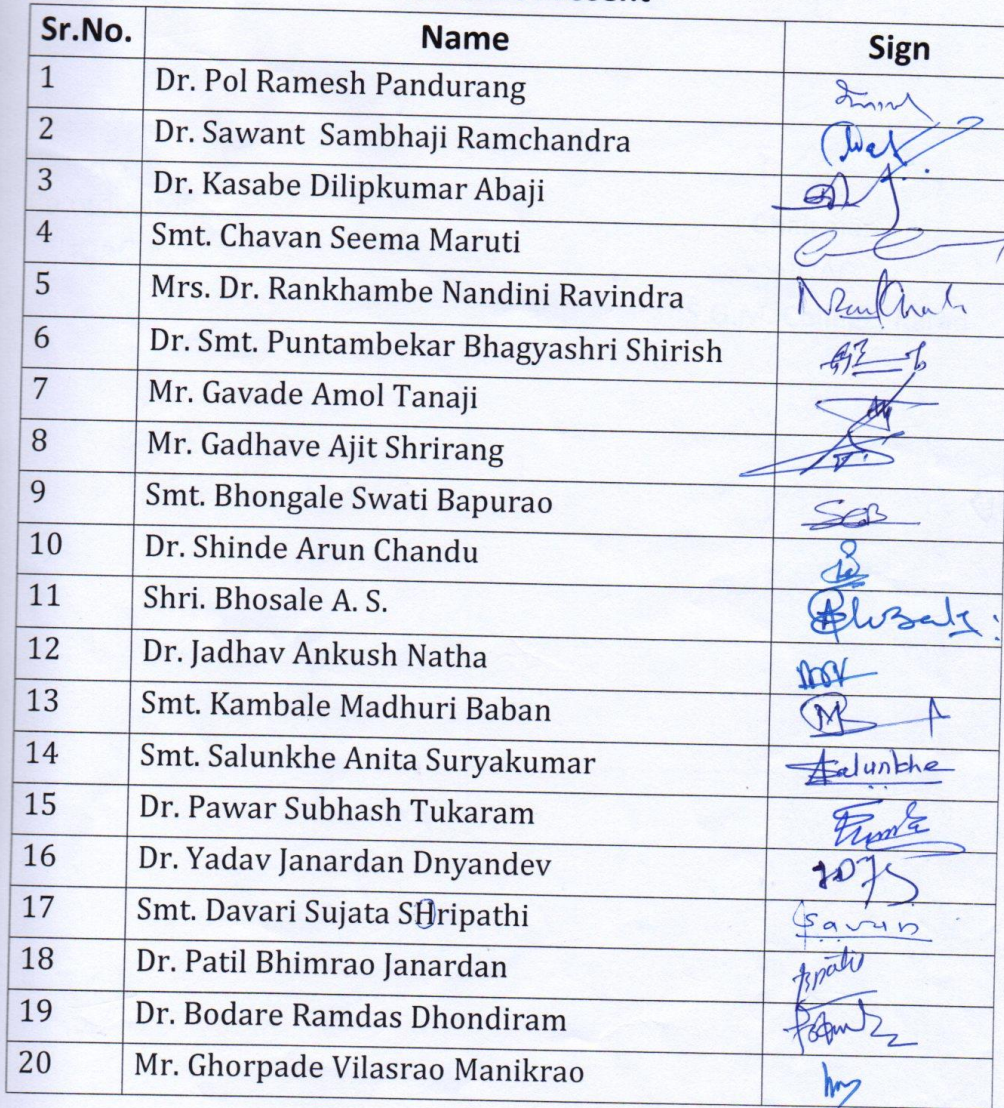 Sr.No. Name Sign
1 Dr. Pol Ramesh Pandurang
2 Dr. Sawant Sambhaji Ramchandra
3 Dr. Kasabe Dilipkumar Abaji
4 Smt. Chavan Seema Maruti
5 Mrs. Dr. Rankhambe Nandini Ravindra
6 Dr. Smt. Puntambekar Bhagyashri Shirish
7 Mr. Gavade Amol Tanaji
8 Mr. Gadhave Ajit Shrirang
9 Smt. Bhongale Swati Bapurao
10 Dr. Shinde Arun Chandu
11 Shri. Bhosale A. S. ABhosale
12 Dr. Jadhav Ankush Natha
13 Smt. Kambale Madhuri Baban
14 Smt. Salunkhe Anita Suryakumar ASalunkhe
15 Dr. Pawar Subhash Tukaram
16 Dr. Yadav Janardan Dnyandev
17 Smt. Davari Sujata SHripathi
18 Dr. Patil Bhimrao Janardan
19 Dr. Bodare Ramdas Dhondiram
20 Mr. Ghorpade Vilasrao Manikrao